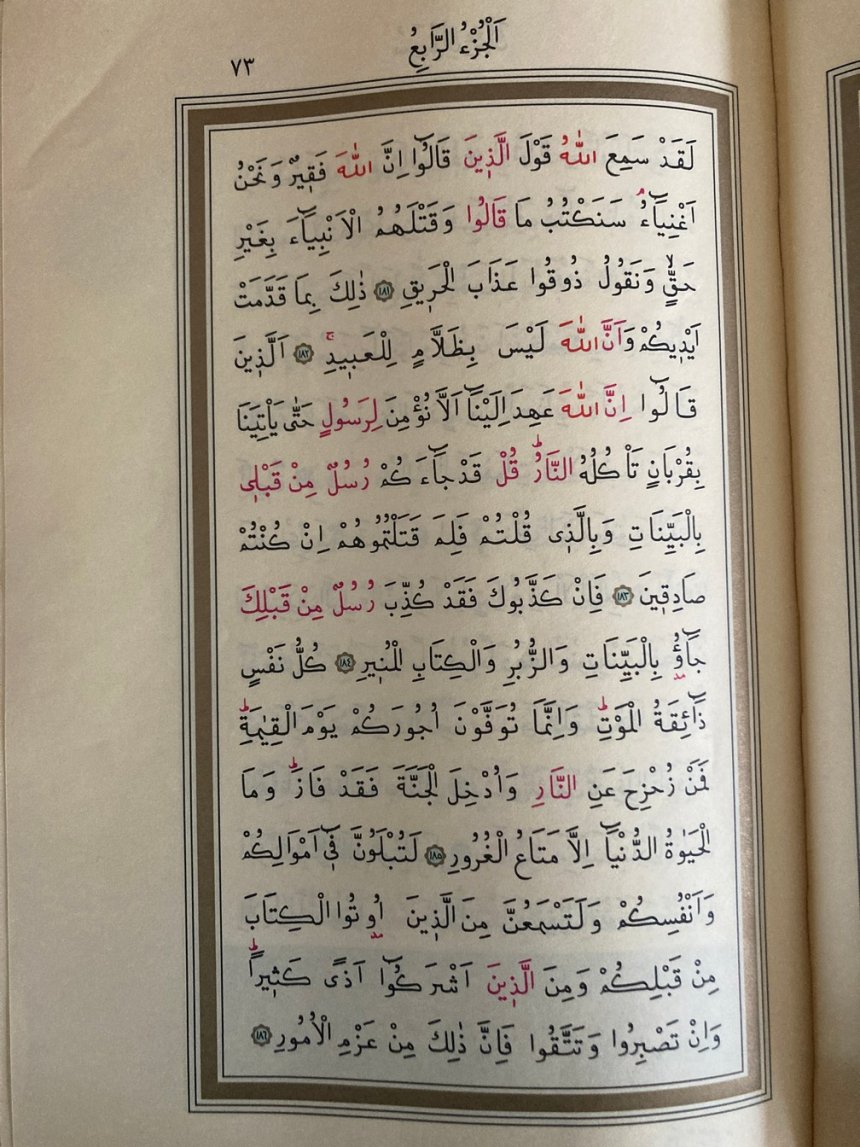 اَلْجُزْءُ الرَّابِعُ
٧٣
لَقَدْ سَمِعَ اللّٰهُ قَوْلَ الَّذ۪ينَ قَالُٓوا اِنَّ اللّٰهَ فَق۪يرٌ وَنَحْنُ
اَغْنِيَٓاءُۢ سَنَكْتُبُ مَا قَالُوا وَقَتْلَهُمُ الْاَنْبِيَٓاءَ بِغَيْرِ
حَقٍّۙ وَنَقُولُ ذُوقُوا عَذَابَ الْحَر۪يقِ ﴿١٨١﴾ ذٰلِكَ بِمَا قَدَّمَتْ
اَيْد۪يكُمْ وَاَنَّ اللّٰهَ لَيْسَ بِظَلَّامٍ لِلْعَب۪يدِۚ ﴿١٨٢﴾ اَلَّذ۪ينَ
قَالُٓوا اِنَّ اللّٰهَ عَهِدَ اِلَيْنَٓا اَلَّا نُؤْمِنَ لِرَسُولٍ حَتّٰى يَأْتِيَنَا
بِقُرْبَانٍ تَأْكُلُهُ النَّارُۜ قُلْ قَدْ جَٓاءَكُمْ رُسُلٌ مِنْ قَبْل۪ي
بِالْبَيِّنَاتِ وَبِالَّذ۪ى قُلْتُمْ فَلِمَ قَتَلْتُمُوهُمْ اِنْ كُنْتُمْ
صَادِق۪ينَ ﴿١٨٣﴾ فَاِنْ كَذَّبُوكَ فَقَدْ كُذِّبَ رُسُلٌ مِنْ قَبْلِكَ
جَٓاؤُ۫ بِالْبَيِّنَاتِ وَالزُّبُرِ وَالْكِتَابِ الْمُن۪يرِ ﴿١٨٤﴾ كُلُّ نَفْسٍ
ذَٓائِقَةُ الْمَوْتِۜ وَاِنَّمَا تُوَفَّوْنَ اُجُورَكُمْ يَوْمَ الْقِيٰمَةِۜ
فَمَنْ زُحْزِحَ عَنِ النَّارِ وَاُدْخِلَ الْجَنَّةَ فَقَدْ فَازَۜ وَمَا
الْحَيٰوةُ الدُّنْيَٓا اِلَّا مَتَاعُ الْغُرُورِ ﴿١٨٥﴾ لَتُبْلَوُنَّ ف۪ٓى اَمْوَالِكُمْ
وَاَنْفُسِكُمْ وَلَتَسْمَعُنَّ مِنَ الَّذ۪ينَ اُو۫تُوا الْكِتَابَ
مِنْ قَبْلِكُمْ وَمِنَ الَّذ۪ينَ اَشْرَكُٓوا اَذًى كَث۪يرًاۜ
وَاِنْ تَصْبِرُوا وَتَتَّقُوا فَاِنَّ ذٰلِكَ مِنْ عَزْمِ الْاُمُورِ ﴿١٨٦﴾